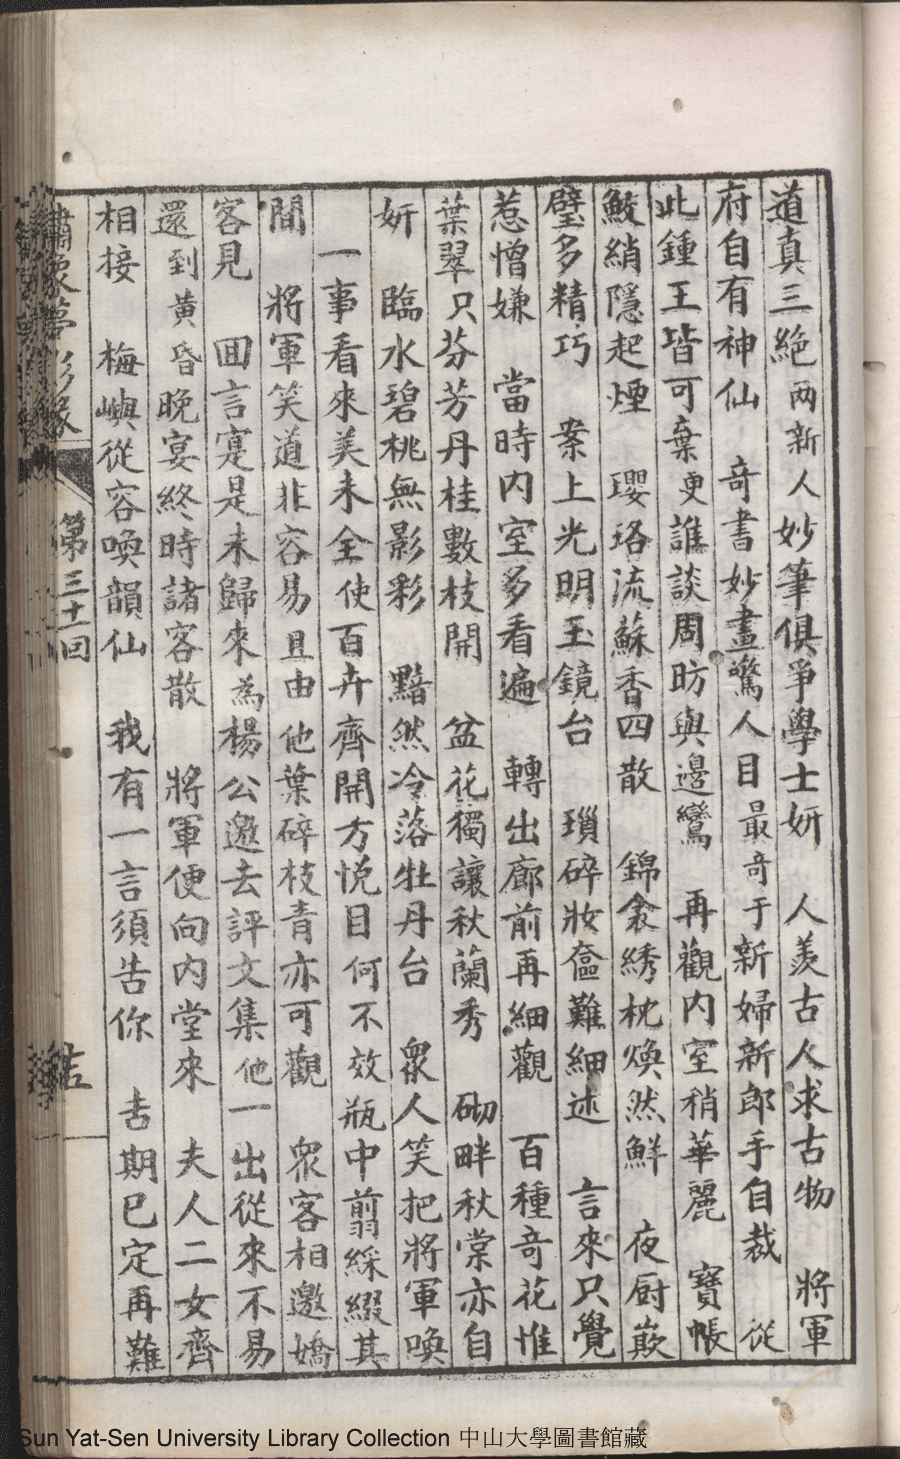 道真三絕兩新人妙筆俱爭學士妍　人羨古人求古物　將軍
府自有神仙　奇書妙畫驚人目最奇于新婦新郎手自裁　從
此鍾王皆可棄更誰談周昉與邊鸞　再觀內室稍華麗　寶帳
鮫綃隱起煙　瓔珞流蘇香四散　錦衾綉枕煥然鮮　夜厨嵌
璧多精巧　案上光明玉鏡台　瑣碎妝奩難細述　言來只覺
惹憎嫌　當時內室多看遍　轉出廊前再細觀　百種奇花惟
葉翠只芬芳丹桂數枝開　盆花獨讓秋蘭秀　砌畔秋棠亦自
妍　臨水碧桃無影彩　黯然冷落牡丹台　眾人笑把將軍喚
一事看來美未全使百卉齊開方悅目何不效瓶中翦綵綴其
間　將軍笑道非容易且由他葉碎枝青亦可觀　眾客相邀嬌
客見　回言寔是未歸來為楊公邀去評文集他一出從來不易
還到黃昏晚宴終時諸客散　將軍便向內堂來　夫人二女齊
相接　梅嶼從容喚韻仙　我有一言須告你　吉期已定再難
夢影緣
第三十一回
Sun Yat-Sen University Library Collection 中山大學圖書館藏